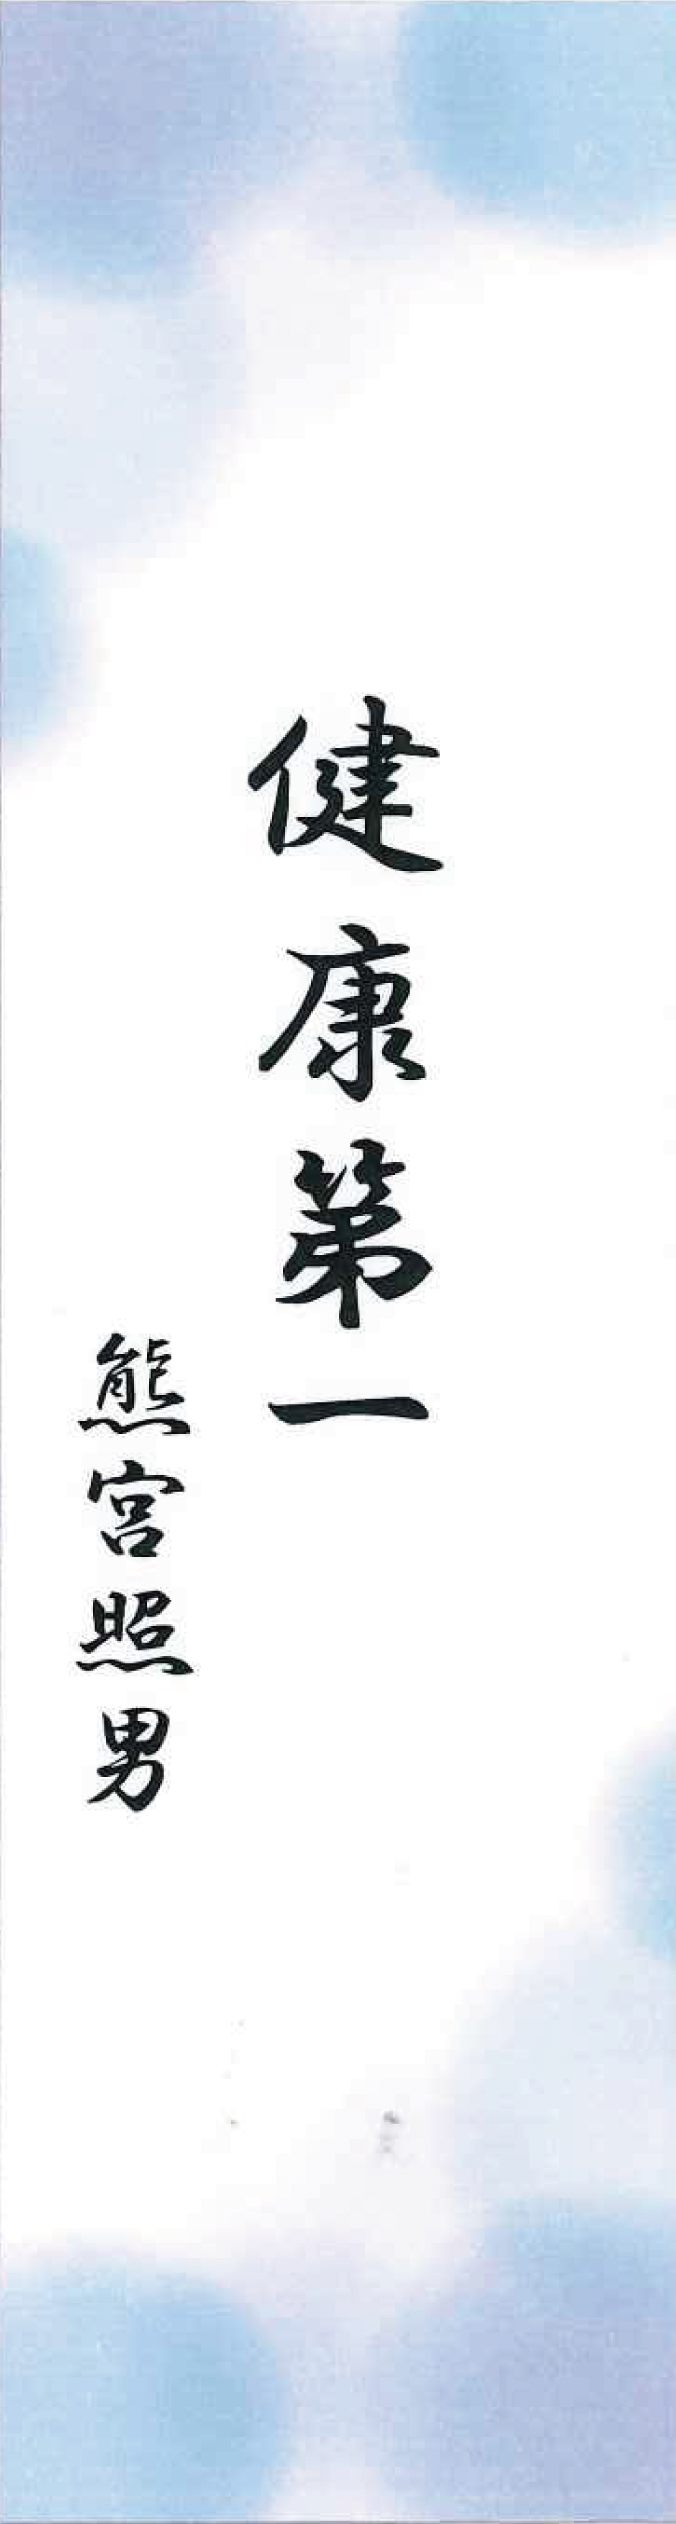 健康第一
熊宮照男